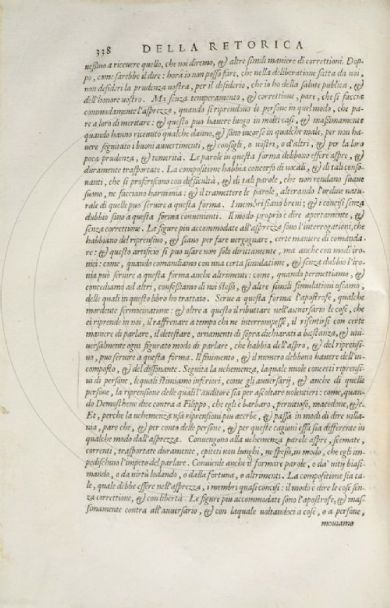 338 DELLA RETORICA
nessino a ricevere quello, che noi diremo, & altre simili maniere di correttioni. Dop-
po, come sarebbe il dire: hora io non posso fare, che nella deliberatione fatta da noi,
non desideri la prudenza vostra, per il desiderio, che io ho della salute publica, &
dell'honore vostro. Ma senza temperamento, & correttione, pare, che si faccia
commodamente l'asprezza, quando si riprendino le persone in quel modo, che pa-
re a loro di meritare: & questo può havere luogo in molti casi, & massimamente
quando hanno ricevuto qualche danno, & sono incorsi in qualche male, per non ha-
vere seguitato i buoni avvertimenti, & consigli, o vostri, o d'altri, & per la loro
poca prudenza, & temerità. Le parole in questa forma debbono essere aspre, &
duramente trasportate. La compositione habbia concorsi di vocali, & di tali conso-
nanti, che si profferiscano con difficultà, & di tali parole, che non rendano suave
suono, ne facciano harmonia: & il tramettere le parole, alterando l'ordine natu-
rale di quelle può servire a questa forma. I membri siano brevi; & i concisi senza
dubbio sono a questa forma convenienti. Il modo proprio è dire apertamente, &
senza correttione. Le figure più accommodate all'asprezza sono l'interrogationi, che
habbiano del riprensivo, & siano per fare vergognare, certe maniere di comanda-
re: & questo artificio si può usare non solo duramente, ma anche con modi iro-
nici: come, quando comandiamo con una certa simulatione, & senza dubbio l'iro-
nia può servire a questa forma anche altrimenti: come, quando permettiamo, &
concediamo ad altri, confessiamo di noi stessi, & altre simili simulationi usiamo,
delle quali in questo libro ho trattato. Serve a questa forma l'apostrofe, qualche
mordente sermocinatione: & oltre a questo il ributtare nell'avversario le cose, che
ci riprende in noi, il raffrenare a tempo chi ne interrompesse, il risentirsi con certe
maniere di parlare, il detestare, ornamenti di sopra dichiarati a bastanza, & uni-
versalmente ogni figurato modo di parlare, che habbia dell'aspro, & del riprensi-
vo, può servire a questa forma. Il finimento, & il numero debbono havere dell'in-
composto, & del dissonante. Seguita la vehemenza, laquale vuole concetti riprensi-
vi di persone, lequali stimiamo inferiori, come gli avversarij, & anche di quelle
persone, la riprensione delle quali l'auditore sia per ascoltare volentieri: come, quan-
do Demosthene dice contra a Filippo, che egli è barbaro, &c.
Et, perche la vehemenza usa riprensioni più acerbe, & passa in modi di dire villa-
nia, pare che, & per conto delle persone, & per queste cagioni essa sia differente in
qualche modo dall'asprezza. Convengono alla vehemenza parole aspre, scemate,
correnti, trasportate duramente, epiteti non lunghi, ne spessi, in modo, che egli im-
pedischino l'impeto del parlare. Conviene anche il formare parole, o da' vitij biasi-
mando, o da virtù lodando, o dalla fortuna, o altrimenti. La compositione sia ta-
le, quale debbe essere nell'asprezza, i membri quasi concisi: il modo è dire le cose sen-
za correttione, & con libertà. Le figure più accommodate sono l'apostrofe, & mas-
simamente contra all'avversario, & con laquale voltandoci a cose, o a persone,
moviamo